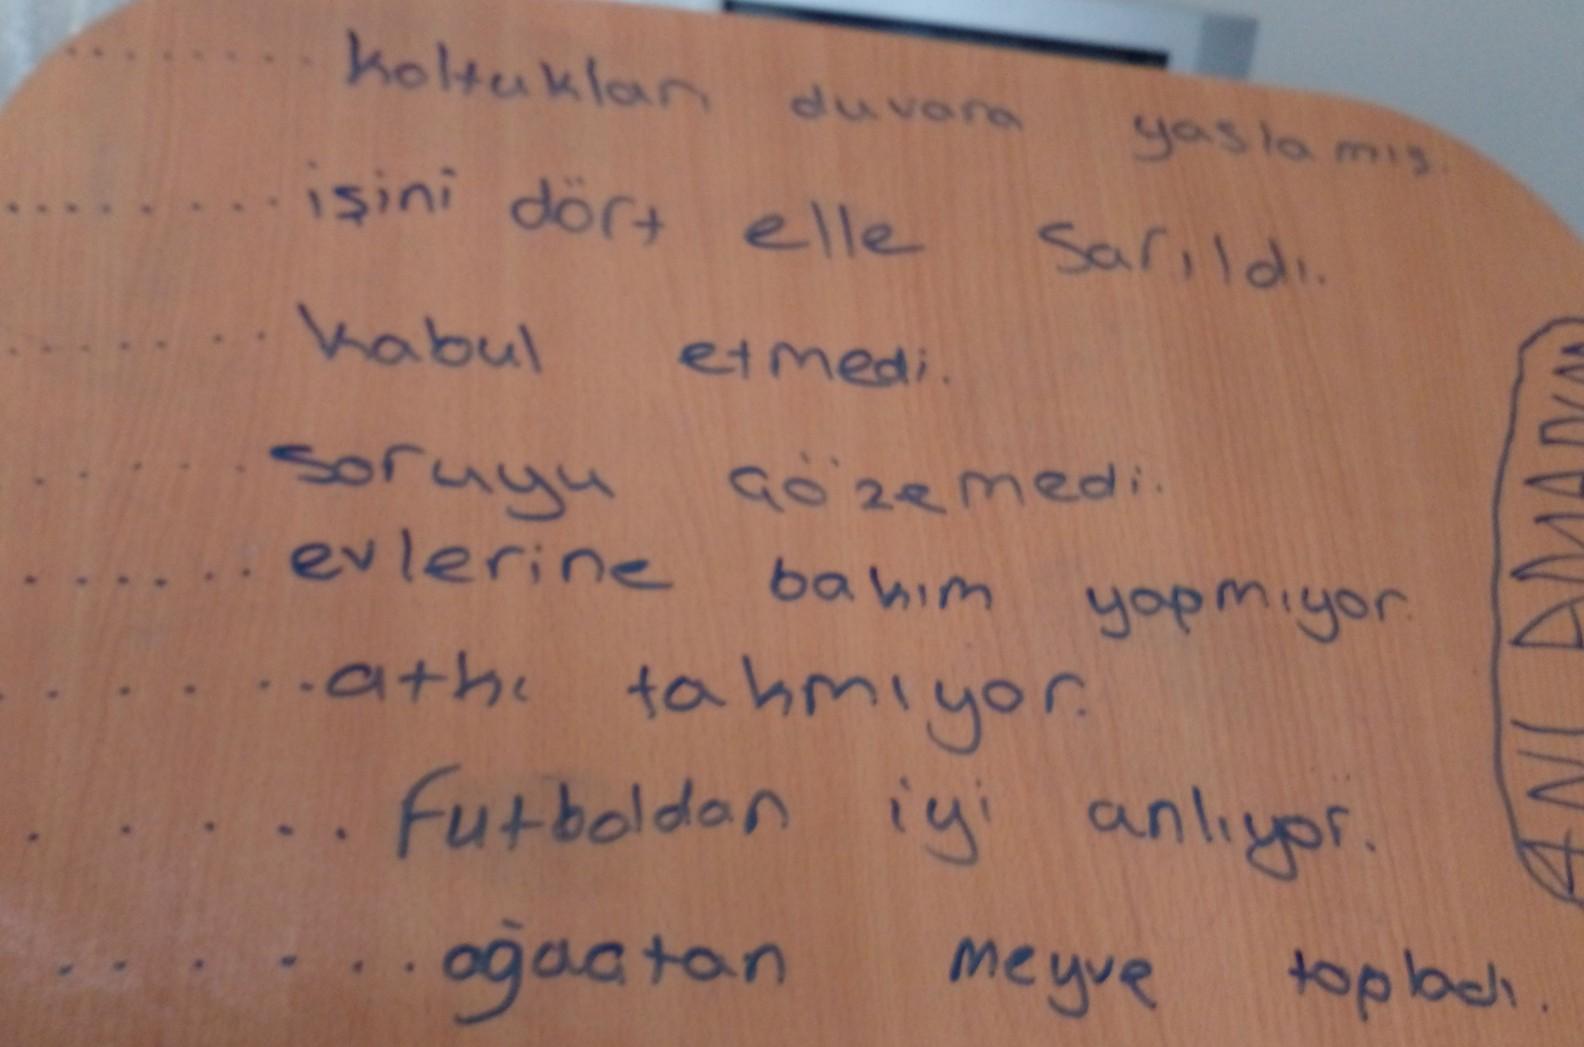 ........ koltukları duvara yaslamış.
......... işini dört elle sarıldı.
....... kabul etmedi.
...... soruyu çözemedi.
...... evlerine bakım yapmıyor.
....... atkı takmıyor.
...... futboldan iyi anlıyor.
....... ağaçtan meyve topladı.